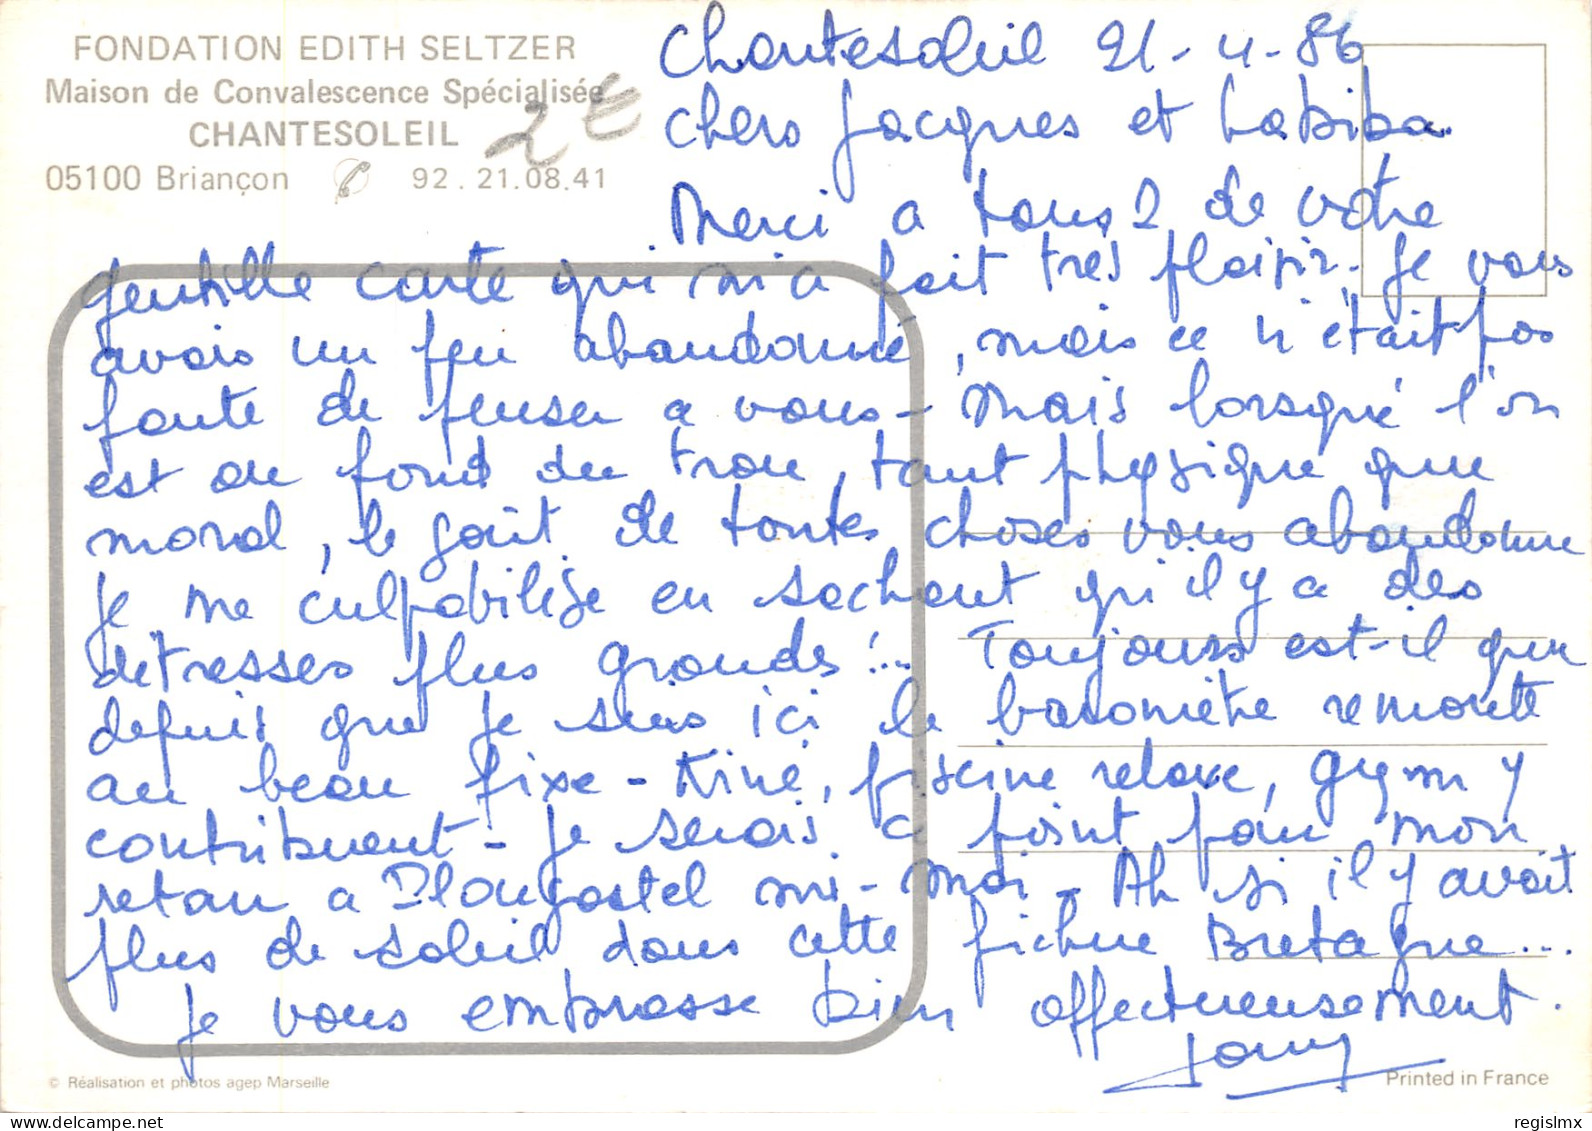 FONDATION EDITH SELTZER
Maison de Convalescence Spécialisée
CHANTESOLEIL
05100 Briançon 92.21.08.41
2 €
Chantesoleil 21-4-86
Chers Jacques et Labiba
Merci a tous 2 de votre
gentille carte qui m'a fait très plaisir. Je vous
avais un peu abandonné, mais ce n'était pas
faute de penser a vous - Mais lorsque l'on
est au fond du trou, tant physique que
moral, le goût de toutes choses vous abandonne
Je me culpabilise en sachant qu'il y a des
détresses plus grandes !... Toujours est-il que
depuis que je suis ici le baromètre remonte
au beau fixe - Kiné, piscine relaxe, gym y
contribuent - Je serais a point pour mon
retour a Plougastel mi-mai - Ah si il y avait
plus de soleil dans cette fichue Bretagne...
Je vous embrasse bien affectueusement.
© Réalisation et photos agep Marseille
Printed in France
regislmx